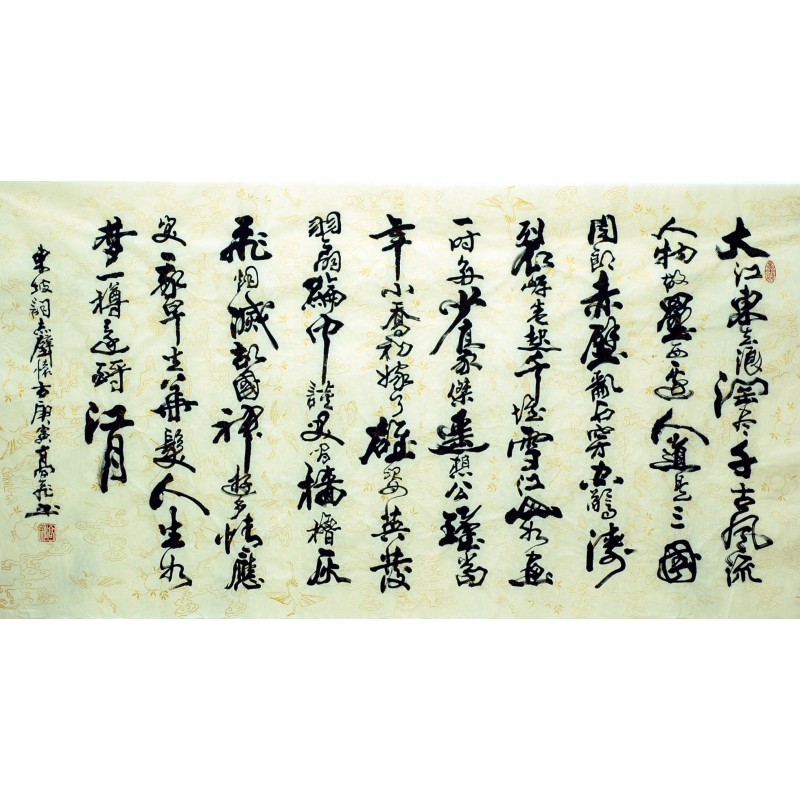 大江東去浪淘盡千古風流
人物故壘西邊人道是三國
周郎赤壁亂石穿空驚濤
裂岸卷起千堆雪江山如畫
一時多少豪傑遙想公瑾當
年小喬初嫁了雄姿英發
羽扇綸巾談笑間檣櫓灰
飛烟滅故國神遊多情應
笑我早生華髮人生如
夢一樽還酹江月
東坡詞赤壁懷古庚寅高飛書